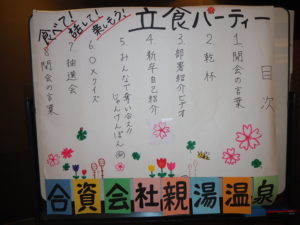 食べて、話して!
楽しもう!
立食パーティー
目次
1 開会の言葉
2 乾杯
3 部署紹介ビデオ
4 新卒自己紹介
5 みんなで奪い合え!!
じゃんけんぽん
6 ○×クイズ
7 抽選会
8 閉会の言葉
合資会社親湯温泉